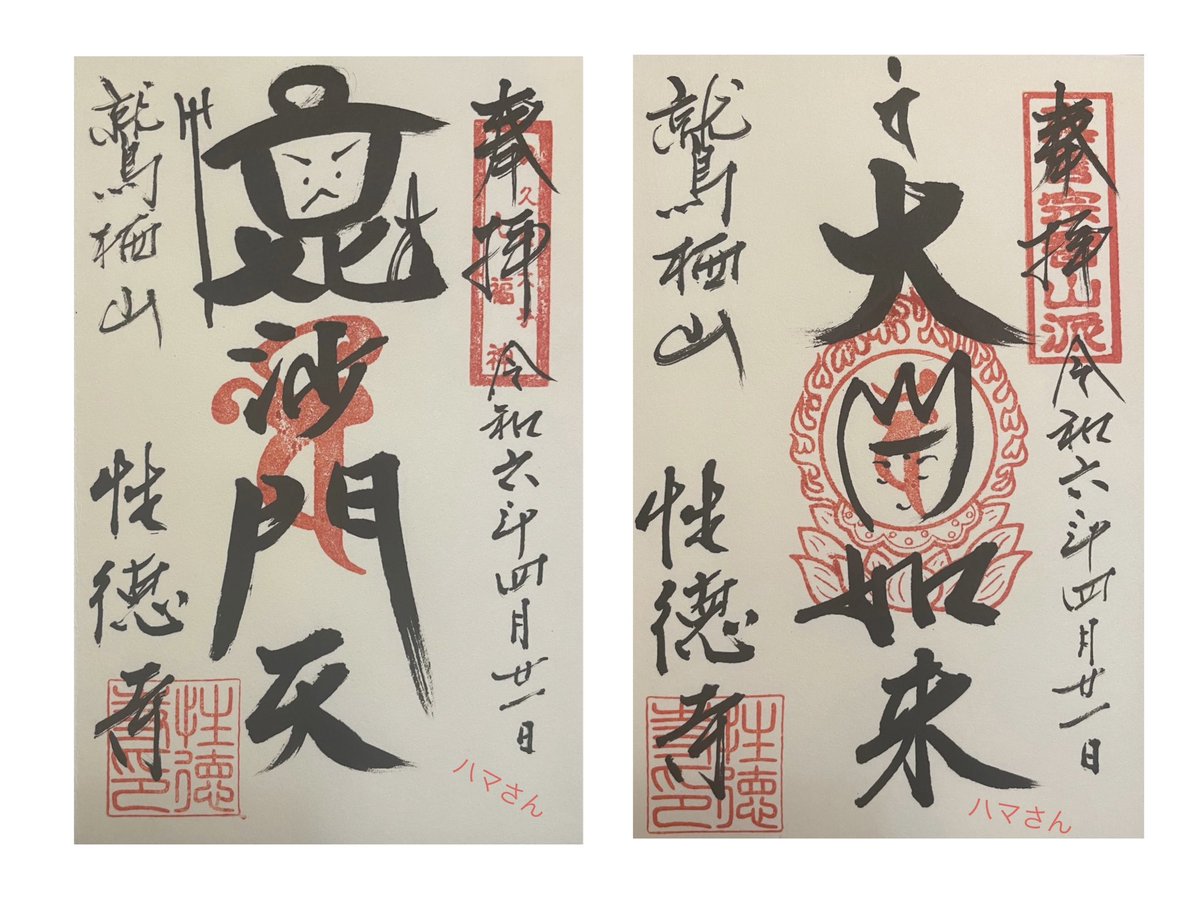 奉拝 令和六年四月廿一日
毘沙門天
鷲栖山 性徳寺
性徳寺印
ハマさん
奉拝 令和六年四月廿一日
真言宗豊山派
大日如来
鷲栖山 性徳寺
性徳寺印
ハマさん